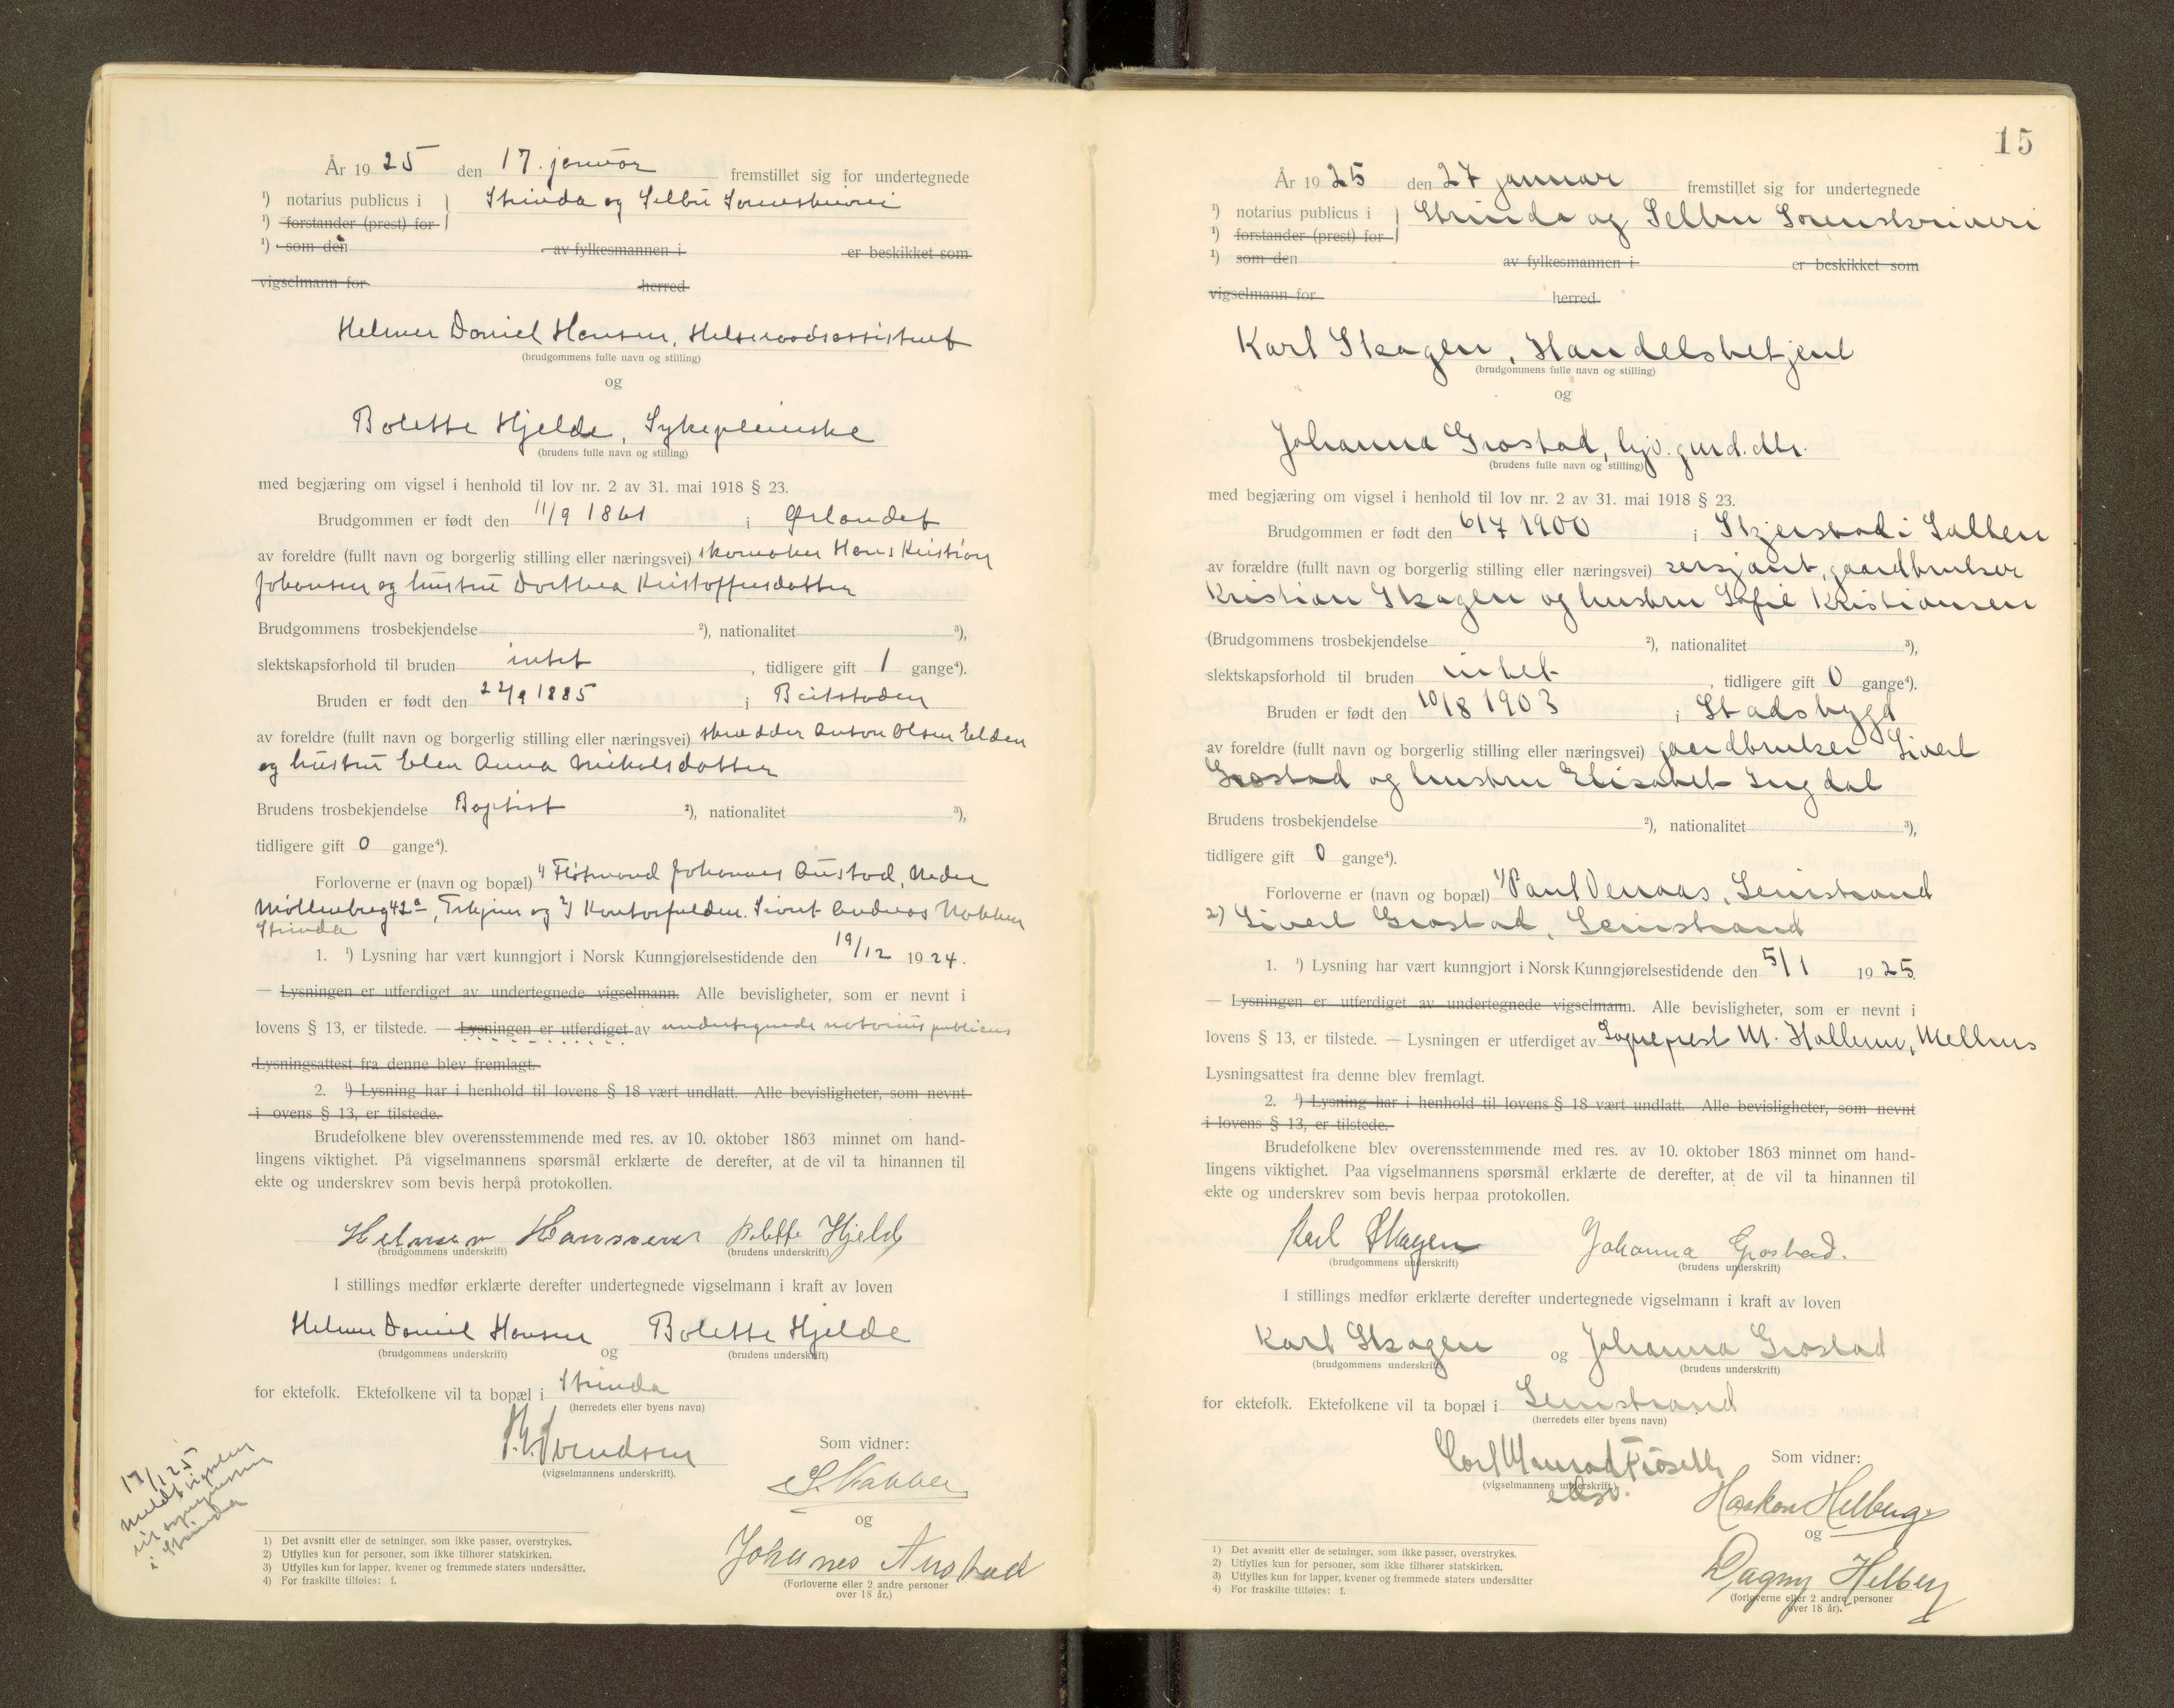 År 1925 den 17. januar fremstillet sig for undertegnede
¹) notarius publicus i } Strinda og Selbu Sorenskriveri
¹) forstander (prest) for
¹) som den av fylkesmannen i er beskikket som
vigselmann for herred
Helmer Daniel Hansen, Helseraadsassistent
(brudgommens fulle navn og stilling)
og
Bolette Hjelde, Sykepleierske
(brudens fulle navn og stilling)
med begjæring om vigsel i henhold til lov nr. 2 av 31. mai 1918 § 23.
Brudgommen er født den 11/9 1861 i Ørlandet
av foreldre (fullt navn og borgerlig stilling eller næringsvei) skomaker Hans Kristian
Johansen og hustru Dorthea Kristoffersdatter
Brudgommens trosbekjendelse ²), nationalitet ³),
slektskapsforhold til bruden intet, tidligere gift 1 gange⁴).
Bruden er født den 22/9 1885 i Beitstaden
av foreldre (fullt navn og borgerlig stilling eller næringsvei) skrædder Anton Olsen Eelden
og hustru Elen Anna Nikolsdatter
Brudens trosbekjendelse Baptist ²), nationalitet ³),
tidligere gift 0 gange⁴).
Forloverne er (navn og bopæl) 1) Johannes Austad, Nedre
Møllenberg 42a, Trhjem og 2) Andreas Nokken
Strinda
1. ¹) Lysning har vært kunngjort i Norsk Kunngjørelsestidende den 19/12 1924.
— Lysningen er utferdiget av undertegnede vigselmann. Alle bevisligheter, som er nevnt i
lovens § 13, er tilstede. — Lysningen er utferdiget av undertegnede notarius publicus
Lysningsattest fra denne blev fremlagt.
2. ¹) Lysning har i henhold til lovens § 18 vært undlatt. Alle bevisligheter, som nevnt
i ovens § 13, er tilstede.
Brudefolkene blev overensstemmende med res. av 10. oktober 1863 minnet om hand-
lingens viktighet. På vigselmannens spørsmål erklærte de derefter, at de vil ta hinannen til
ekte og underskrev som bevis herpå protokollen.
Helmer Hanssen Bolette Hjelde
(brudgommens underskrift) (brudens underskrift)
I stillings medfør erklærte derefter undertegnede vigselmann i kraft av loven
Helmer Daniel Hansen og Bolette Hjelde
(brudgommens underskrift) (brudens underskrift)
for ektefolk. Ektefolkene vil ta bopæl i Strinda
(herredets eller byens navn)
Svendsen
(vigselmannens underskrift).
Som vidner:
og
Johanes Austad
(Forloverne eller 2 andre personer
over 18 år.)
17/1 25
meldt vigselen
til sognepresten
i Strinda
1) Det avsnitt eller de setninger, som ikke passer, overstrykes.
2) Utfylles kun for personer, som ikke tilhører statskirken.
3) Utfylles kun for lapper, kvener og fremmede staters undersåtter.
4) For fraskilte tilføies: f.
15
År 1925 den 27 januar fremstillet sig for undertegnede
¹) notarius publicus i } Strinda og Selbu Sorenskriveri
¹) forstander (prest) for
¹) som den av fylkesmannen i er beskikket som
vigselmann for herred
Karl Skagen, Handelsbetjent
(brudgommens fulle navn og stilling)
og
Johanna Grostad, hjv. gmd. dtr.
(brudens fulle navn og stilling)
med begjæring om vigsel i henhold til lov nr. 2 av 31. mai 1918 § 23.
Brudgommen er født den 6/7 1900 i Skjerstad i Salten
av forældre (fullt navn og borgerlig stilling eller næringsvei) sersjant, gaardbruker
Kristian Skagen og hustru Sofie Kristiansen
(Brudgommens trosbekjendelse ²), nationalitet ³),
slektskapsforhold til bruden intet, tidligere gift 0 gange⁴).
Bruden er født den 10/8 1903 i Stadsbygd
av foreldre (fullt navn og borgerlig stilling eller næringsvei) gaardbruker Sivert
Grostad og hustru Elisabet Ingdal
Brudens trosbekjendelse ²), nationalitet ³),
tidligere gift 0 gange⁴).
Forloverne er (navn og bopæl) 1) Paul Venaas, Leinstrand
2) Sivert Grostad, Leinstrand
1. ¹) Lysning har vært kunngjort i Norsk Kunngjørelsestidende den 5/1 1925.
— Lysningen er utferdiget av undertegnede vigselmann. Alle bevisligheter, som er nevnt i
lovens § 13, er tilstede. — Lysningen er utferdiget av Sogneprest M. Hallem, Melhus
Lysningsattest fra denne blev fremlagt.
2. ¹) Lysning har i henhold til lovens § 18 vært undlatt. Alle bevisligheter, som nevnt
i lovens § 13, er tilstede.
Brudefolkene blev overensstemmende med res. av 10. oktober 1863 minnet om hand-
lingens viktighet. Paa vigselmannens spørsmål erklærte de derefter, at de vil ta hinannen til
ekte og underskrev som bevis herpaa protokollen.
Karl Skagen Johanna Grostad.
(brudgommens underskrift) (brudens underskrift)
I stillings medfør erklærte derefter undertegnede vigselmann i kraft av loven
Karl Skagen og Johanna Grostad
(brudgommens underskrift) (brudens underskrift)
for ektefolk. Ektefolkene vil ta bopæl i Leinstrand
(herredets eller byens navn)
(vigselmannens underskrift)
Som vidner:
Haakon Helberg
og
Dagny Helberg
(forloverne eller 2 andre personer
over 18 år).
1) Det avsnitt eller de setninger, som ikke passer, overstrykes.
2) Utfylles kun for personer, som ikke tilhører statskirken.
3) Utfylles kun for lapper, kvener og fremmede staters undersåtter
4) For fraskilte tilføies: f.